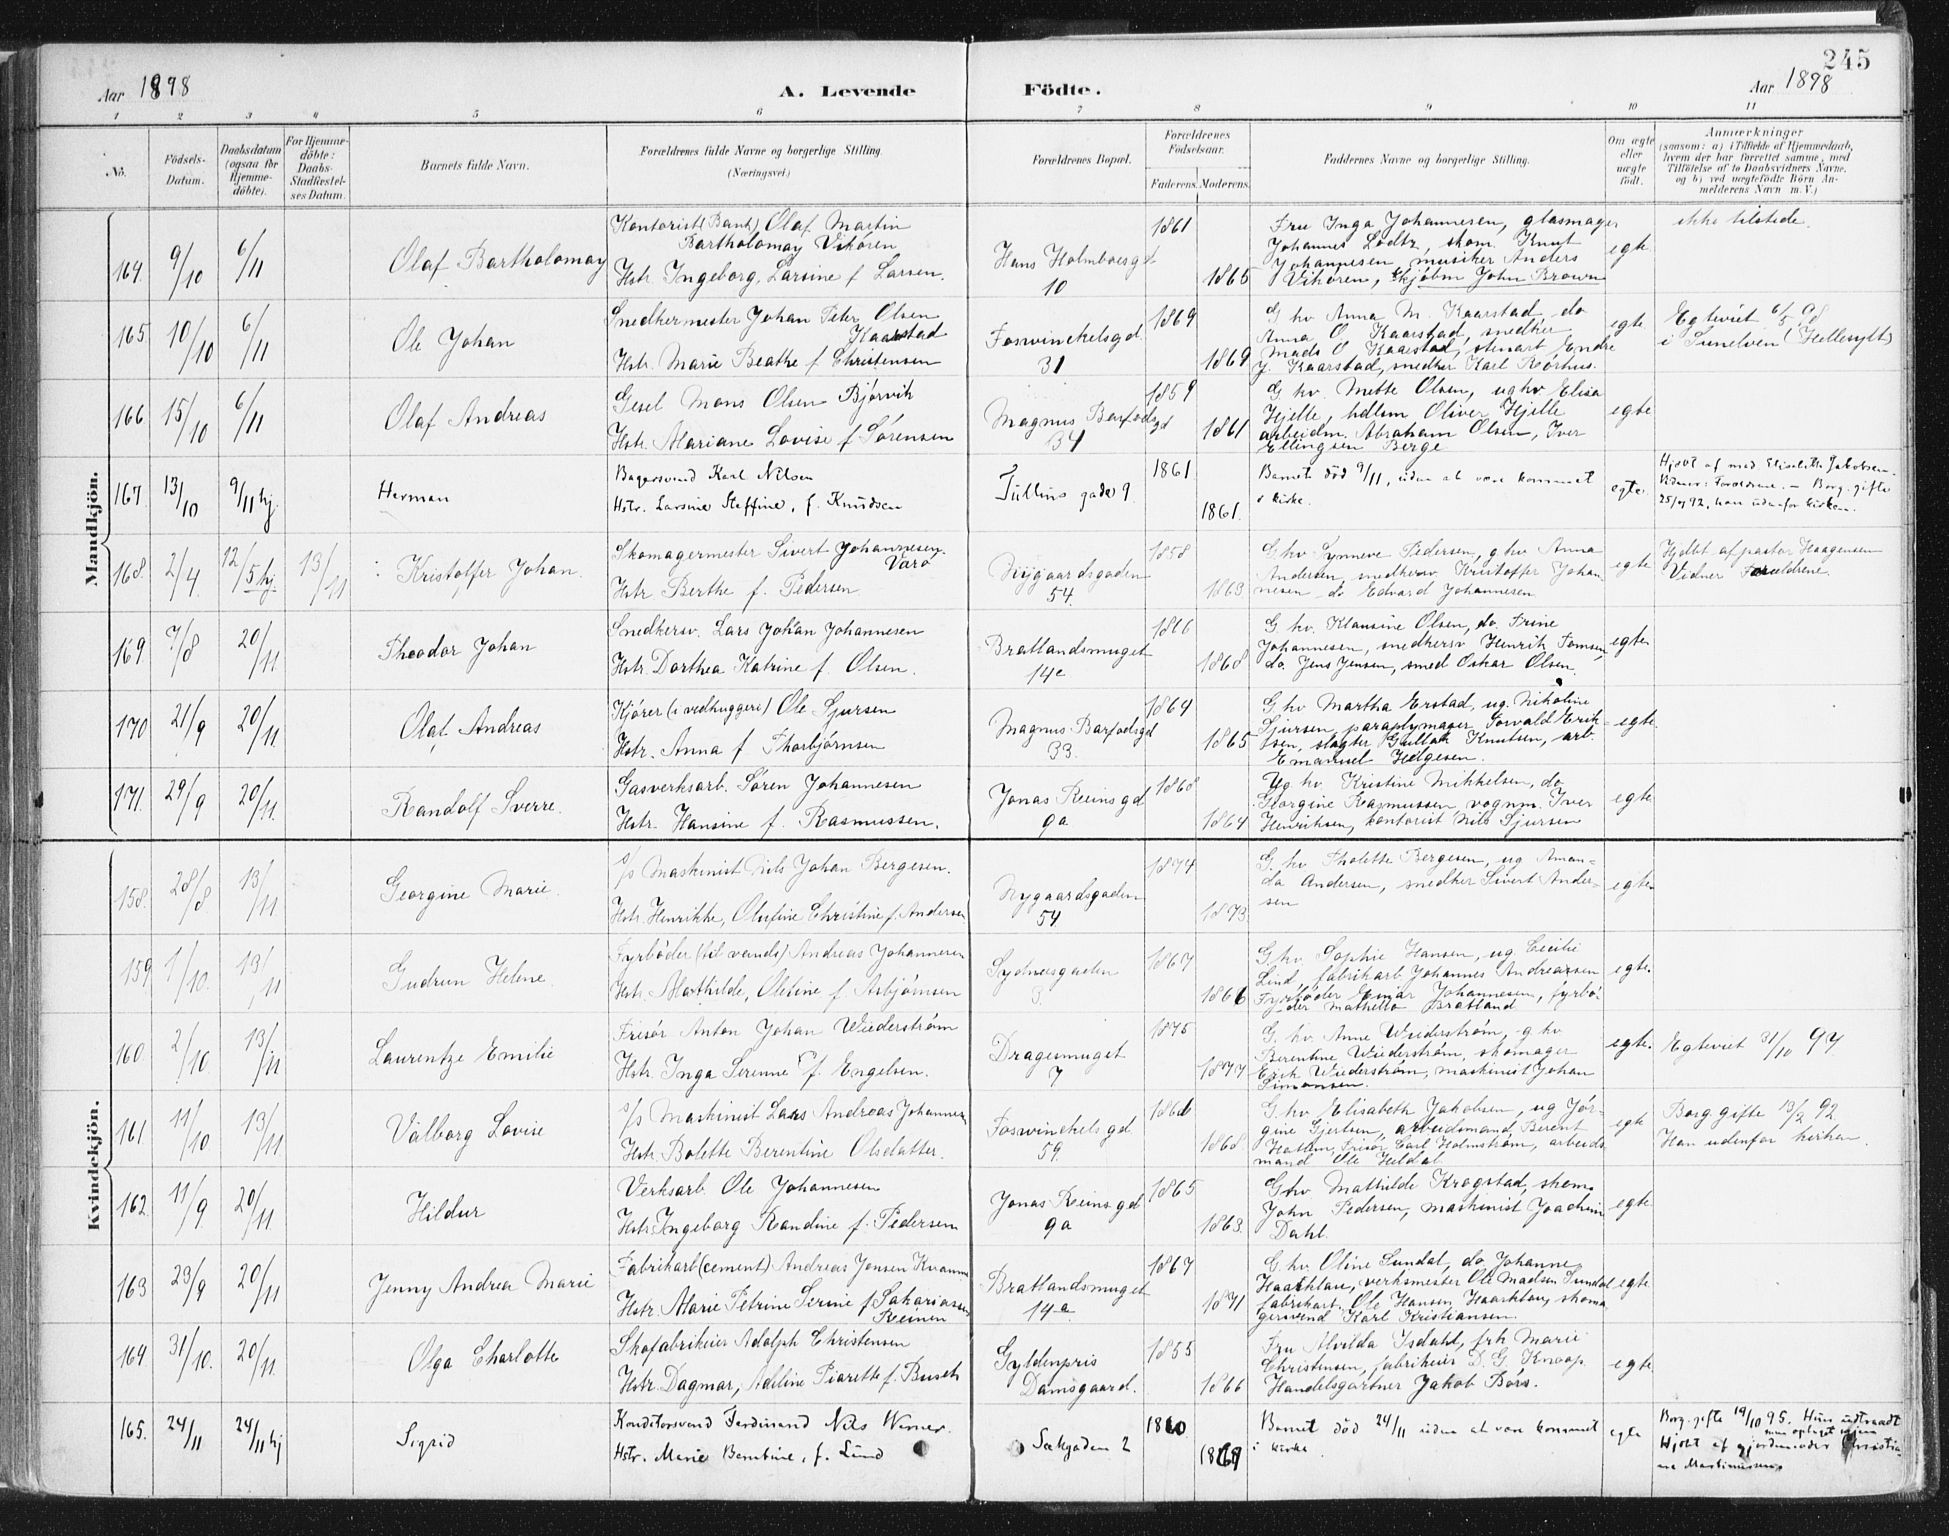 245
Aar 1898
A. Levende Födte.
Aar 1898
1 2 3 4 5 6 7 8 9 10 11
No.
Födsels-Datum.
Daabsdatum (ogsaa for Hjemme-döbte).
For Hjemme-döbte: Daabs-Stadfæstel-ses Datum.
Barnets fulde Navn.
Forældrenes fulde Navne og borgerlige Stilling (Næringsvei.)
Forældrenes Bopæl.
Forældrenes Födselsaar.
Faderens. Moderens.
Faddernes Navne og borgerlige Stilling.
Om ægte eller uægte födt.
Anmærkninger
(saasom: a) i Tilfælde af Hjemmedaab,
hvem der har forrettet samme, med
Tilföielse af to Daabsvidners Navne,
og b) ved uægtefödte Börn An-
melderens Navn m. V.)
Mandkjön.
164. 9/10 6/11 Olaf Bartholomay
Kontorist (Bank) Olaf Martin
Bartholomay Vikören
Hstr. Ingeborg, Larsine f Larsen.
Hans Holmboesgt
10
1861
1865
Fru Inga Johannesen, glasmager
Johannes Lödtz, skom. Knut
Johannesen, musiker Anders
Vikören, skjöbm John Brown
egte
ikke tilstede.
165. 10/10 6/11 Ole Johan
Snedkermester Johan Peter Olsen
Kaarstad
Hstr. Marie Beathe f Christensen
Foswinckelsgd
31
1869
1869
G hv Anna M. Kaarstad, do
Anna O Kaarstad, snedker
Mads O Kaarstad, stenart Endre
J. Kaarstad, snedker Karl Rörhus.
egte
Egteviet 6/5 98
i Sunelven (Hellesylt)
166 15/10 6/11 Olaf Andreas
Gesel Mons Olsen Bjørvik
Hstr. Mariane Lovise f Sörensen
Magnus Barfodsgd
34
1859
1861
G hv Mette Olsen, ughv Elisa
Hjelle, hdlsm Oliver Hjelle
arbeidm. Abraham Olsen, Iver
Ellingsen Berge
egte
167 13/10 9/11 hj. Herman
Bagersvend Karl Nilsen
Hstr. Larsine Steffine, f. Knudsen
Tullins gade 9
1861
1861.
Barnet död 9/11, uden at være kommet
i kirke.
egte
Hjdöbt af mad Elisabeth Jakobsen.
Vidner: Forældrene. – Borg. gifte
92, han udenfor kirken.
168. 2/4 12/5 hj. 13/11 Kristoffer Johan.
Skomagermester Sivert Johannesen
Varö
Hstr Berthe f. Pedersen
Nygaardsgaden
54.
1858
1863
G hv Synneve Pedersen, g hv Anna
Andersen, snedkersv. Kristoffer Johan
nesen do Edvard Johannesen
egte
Hjdbt af pastor Haagensen
Vidner Forældrene
169 7/8 20/11 Theodor Johan
Snedkersv. Lars Johan Johannesen
Hstr. Dorthea Katrine f. Olsen.
Bratlandsmuget
14c
1866
1868
G hv. Klausine Olsen, do. Trine
Johannesen, snedkersv Henrik Tomsen,
do. Jens Jensen, smed Oskar Olsen.
egte
170 21/9 20/11 Olaf Andreas
Kjörer (i vedhuggeri) Ole Sjursen
Hstr. Anna f Thorbjörnsen
Magnus Barfodsgd
33.
1864
1865
G hv Martha Erstad, ug. Nikoline
Sjursen, paraplymager Torvald Erik-
sen, slagter Gullak Knutsen, arb.
Emanuel Helgesen.
egte.
171. 29/9 20/11 Randolf Sverre.
Gasverksarb. Sören Johannesen
Hstr. Hansine f. Rasmussen.
Jonas Reins gd
9a
1868
1864
Ug hv Kristine Mikkelsen, do
Georgine Rasmussen, vognm. Iver
Henriksen, kontorist Nils Sjursen
egte
Kvindekjön.
158. 28/8 13/11 Georgine Marie
s/s Maskinist Nils Johan Bergesen.
Hstr. Henrikke, Olufine Christine f. Andersen
Nygaardsgaden
54
1874
1873
G. hv Tholette Bergesen, ug Aman-
da Andersen, snedker Sivert Ander-
sen
egte.
159 1/10. 13/11 Gudrun Helene.
Fyrböder (til vands) Andreas Johannesen
Hstr. Mathilde, Olesine f Asbjörnsen
Sydnæsgaden
3.
1867
1866
G hv. Sophie Hansen, ug Cecilie
Lind, fabrikarb Johannes Andreassen
Fyrböder Einar Johannesen, fyrbö-
der Mathello Bratland
egte.
160 2/10 13/11 Laurentze Emilie
Frisör Anton Johan Wiederström
Hstr. Inga Serenne f. Engelsen.
Dragemuget
7
1875
1877
G. hv. Anne Wiederström, g hv
Berentine Wiederström, skomager
Erik Wiederström, maskinist Johan
Simonsen.
egte.
Egteviet 31/10 97
161 11/10 13/11 Valborg Lovise
s/s Maskinist Lars Andreas Johannesen
Hstr. Bolette Berentine Olsdatter.
Foswinckels gd
59.
1866
1868.
G. hv Elisabeth Jakobsen, ug Jör-
gine Gjertsen, arbeidsmand Berent
Hatlem, Frisör Carl Holmström, arbeids
mand Ole Hildal
egte
Borg. gifte 13/2 92
Han udenfor kirken.
162 11/9 20/11 Hildur
Verksarb. Ole Johannesen
Hstr. Ingeborg Randine f. Pedersen
Jonas Reins gd
9a
1865
1863.
G hv Mathilde Krogstad, skom.
John Pedersen, maskinist Joachim
Dahl.
egte
163 23/9 20/11 Jenny Andrea Marie
Fabrikarb (cement) Andreas Jensen Kvamme
Hstr. Marie Petrine Serine f Sakariassen
Reinen
Bratlandsmuget
14a
1867
1871
G. hv Oline Sundal, do Johanne
Haarklau, verksmester Ole Madsen Sundal
fabrikarb. Ole Hansen Haarklau, skoma
gersvend Karl Kristiansen.
egte
164 31/10. 20/11. Olga Charlotte
Skofabrikeier Adolph Christensen
Hstr. Dagmar, Adeline Piarette f. Busch
Gyldenpris
Damsgaard.
1855
1866
Fru Alvilda Isdahl, frk Marie
Christensen, fabrikeier D. G. Knoop
Handelsgartner Jakob Börs.
egte
165. 24/11 24/11 hj Sigrid
Konditorsvend Ferdinand Nils Werner
Hstr. Marie Bernbine, f. Lund
Sækgaden 2
1860
1869
Barnet död 24/11 uden at være kommet
i kirke
egte
Borg. gifte 19/10 95. Hun udtraadt
men optaget igjen
Hjdbt af gjordemoder Christia-
ne Martinussen